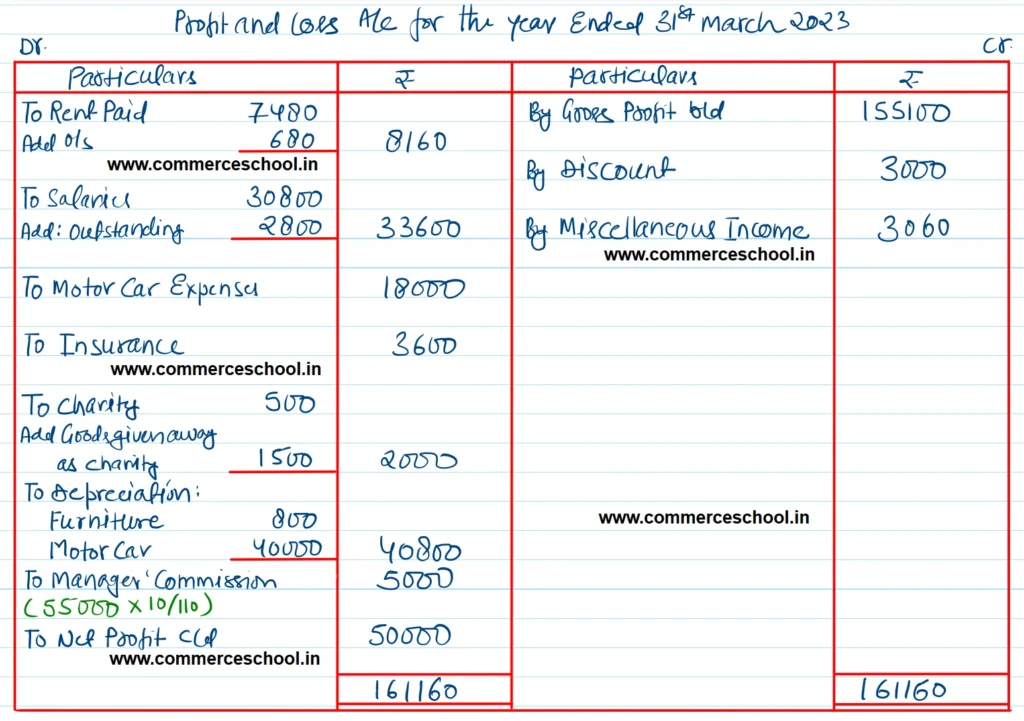 Profit and Loss A/c for the year Ended 31st March 2023
Dr. Cr.
Particulars ₹ Particulars ₹
To Rent Paid 7480 By Gross Profit b/d 155100
Add O/s 680 8160
www.commerceschool.in
By Discount 3000
To Salaries 30800
Add: Outstanding 2800 33600 By Miscellaneous Income 3060
www.commerceschool.in
To Motor Car Expenses 18000
To Insurance 3600
www.commerceschool.in
To Charity 500
Add Goods given away
as charity 1500 2000
To Depreciation:
Furniture 800 www.commerceschool.in
Motor Car 40000 40800
To Manager' Commission 5000
(55000 x 10/110)
To Net Profit C/d 50000
www.commerceschool.in
161160 161160